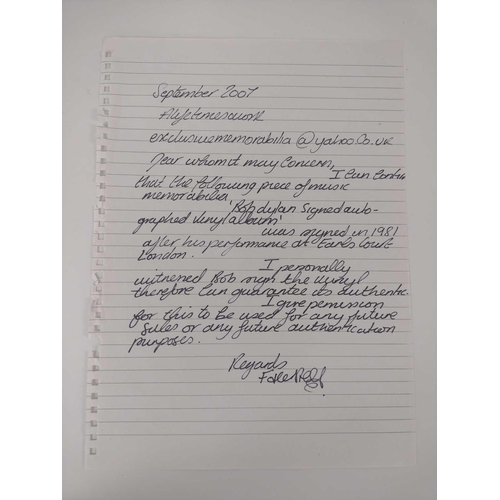 September 2007
Alifetimeswork
exclusivememorabilia@yahoo.co.uk
Dear whom it may concern,
I can confirm
that the following piece of music
memorabilia,
'Bob dylan Signed auto-
graphed vinyl album'
was signed in 1981
after his performance at Earls Court
London.
I personally
witnessed Bob sign the vinyl
therefore can guarantee its authentic.
I give permission
for this to be used for any future
Sales or any future authentication
purposes.
Regards